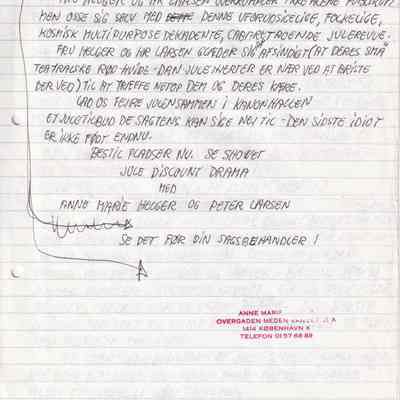 FRU HELGER OG HR LARSEN OVERRUMPLER IKKE ALENE PUBLIKUM
MEN OGSÅ SIG SELV MED DENNE UFORUDSIGELIGE, FOLKELIGE,
KOSMISK MULTIPURPOSE DEKADENTE, CABARETAGENDE JULEREVUE.
FRU HELGER OG HR LARSEN GLÆDER SIG AFSINDIGT (AT DERES SMÅ
TEATRALSKE RØD-HVIDE-DAN JULEHJERTER ER NÆR VED AT BRISTE
DERVED) TIL AT TRÆFFE NETOP DEM OG DERES KÆRE.
LAD OS FEJRE JULEN SAMMEN I KANONHALLEN
ET JULETILBUD DE SAGTENS KAN SIGE NEJ TIL - DEN SIDSTE IDIOT
ER IKKE FØDT ENDNU.
BESTIL PLADSER NU. SE SHOWET
JULE DISCOUNT DRAMA
MED
ANNE MARIE HELGER OG PETER LARSEN
SE DET FØR DIN SAGSBEHANDLER!
ANNE MARIE
OVERGADEN NEDEN VANDET A
1414 KØBENHAVN K
TELEFON 01 57 68 89